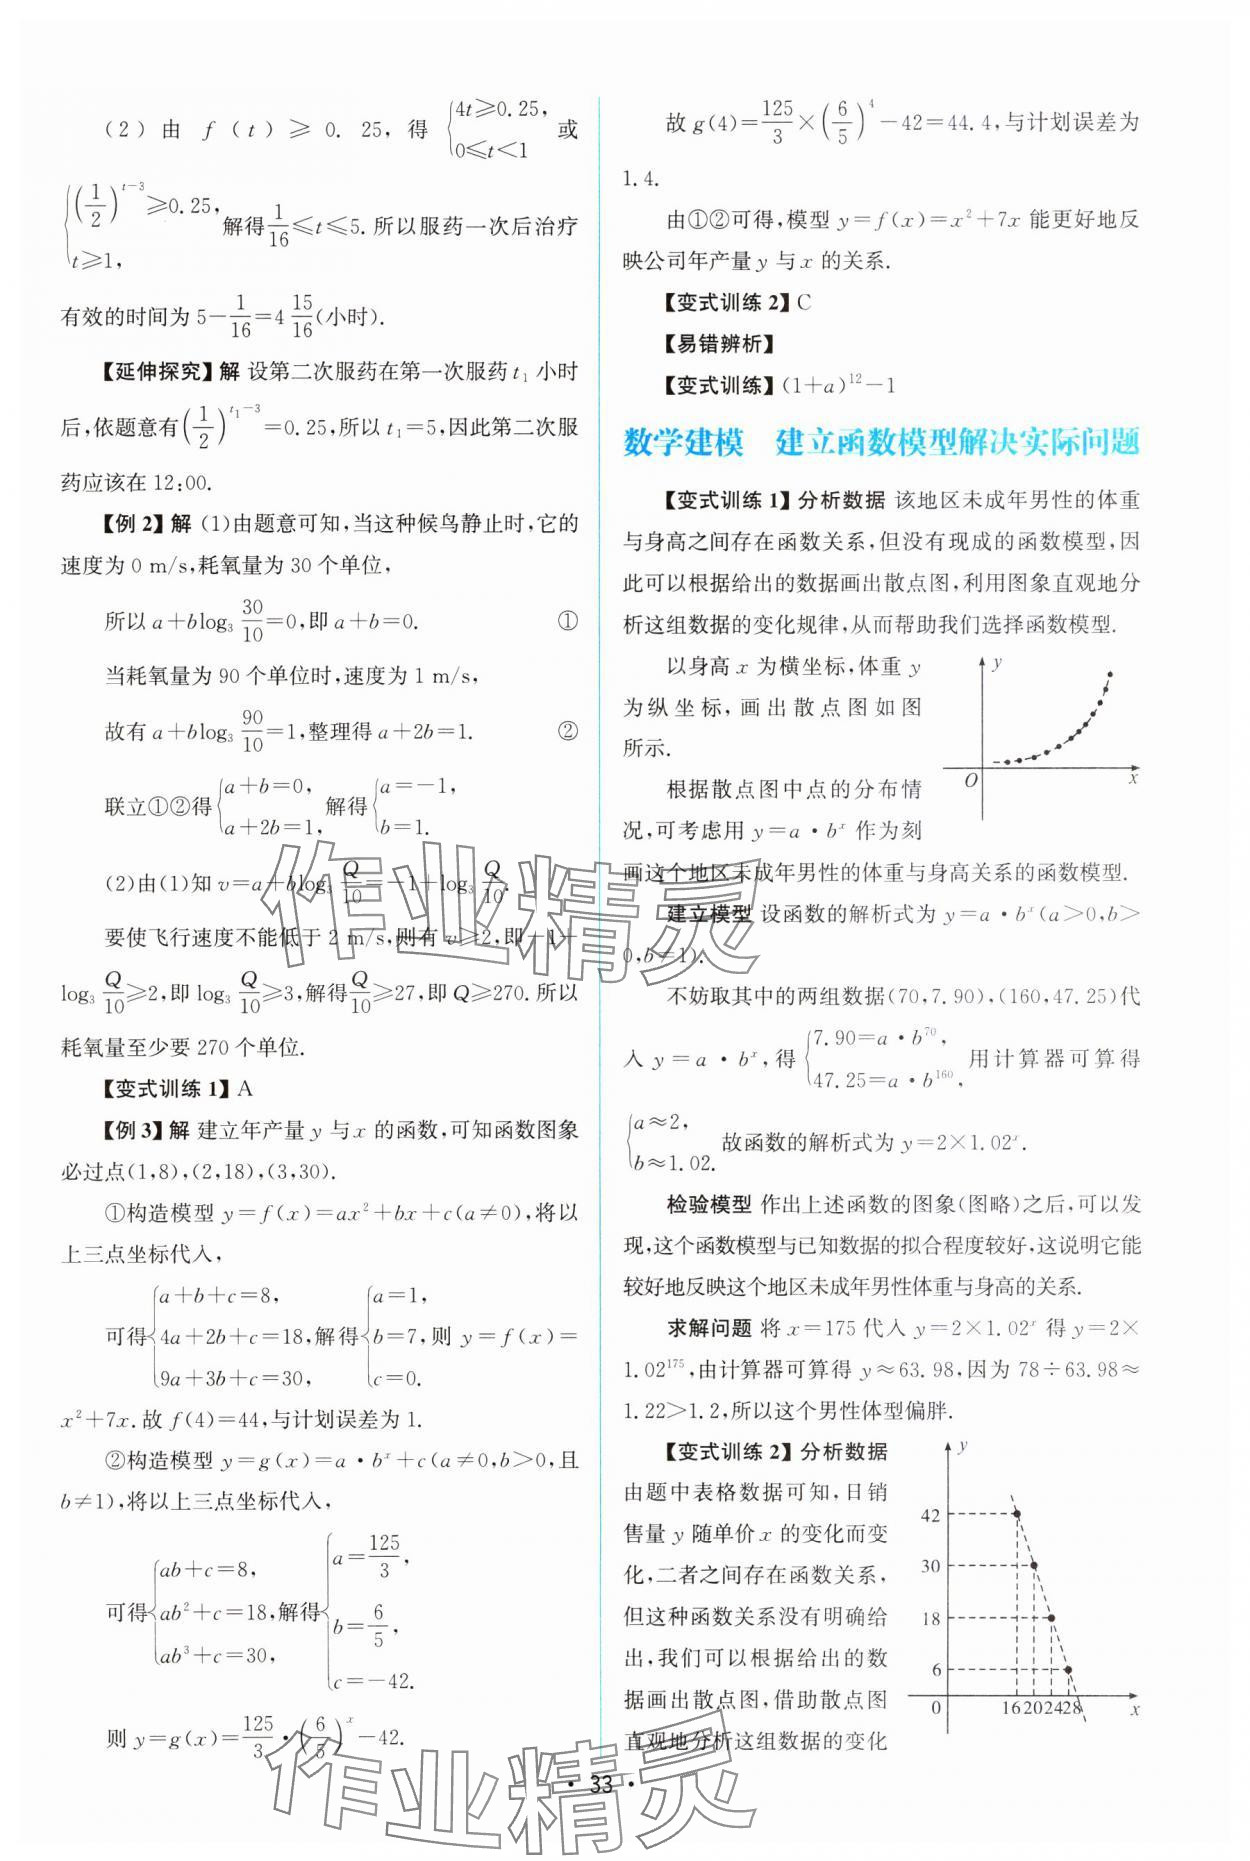 (2)由 f(t)≥0.25,得{4t≥0.25, 0≤t<1 或
{(1/2)^{t-3}≥0.25, t≥1, 解得1/16≤t≤5.所以服药一次后治疗
有效的时间为 5-1/16=4 15/16(小时).
【延伸探究】解 设第二次服药在第一次服药 t₁ 小时
后,依题意有(1/2)^{t₁-3}=0.25,所以 t₁=5,因此第二次服
药应该在 12:00.
【例 2】解 (1)由题意可知,当这种候鸟静止时,它的
速度为 0 m/s,耗氧量为 30 个单位,
所以 a+blog₃ 30/10=0,即 a+b=0. ①
当耗氧量为 90 个单位时,速度为 1 m/s,
故有 a+blog₃ 90/10=1,整理得 a+2b=1. ②
联立①②得{a+b=0, a+2b=1, 解得{a=-1, b=1.
(2)由(1)知 v=a+blog₃ Q/10=-1+log₃ Q/10.
要使飞行速度不能低于 2 m/s,则有 v≥2,即-1+
log₃ Q/10≥2,即 log₃ Q/10≥3,解得Q/10≥27,即 Q≥270.所以
耗氧量至少要 270 个单位.
【变式训练 1】A
【例 3】解 建立年产量 y 与 x 的函数,可知函数图象
必过点(1,8),(2,18),(3,30).
①构造模型 y=f(x)=ax²+bx+c(a≠0),将以
上三点坐标代入,
可得{a+b+c=8, 4a+2b+c=18, 9a+3b+c=30, 解得{a=1, b=7, c=0. 则 y=f(x)=
x²+7x.故 f(4)=44,与计划误差为 1.
②构造模型 y=g(x)=a·bˣ+c(a≠0,b>0,且
b≠1),将以上三点坐标代入,
可得{ab+c=8, ab²+c=18, ab³+c=30, 解得{a=125/3, b=6/5, c=-42.
则 y=g(x)=125/3·(6/5)ˣ-42.
故 g(4)=125/3×(6/5)⁴-42=44.4,与计划误差为
1.4.
由①②可得,模型 y=f(x)=x²+7x 能更好地反
映公司年产量 y 与 x 的关系.
【变式训练 2】C
【易错辨析】
【变式训练】(1+a)¹²-1
数学建模 建立函数模型解决实际问题
【变式训练 1】分析数据 该地区未成年男性的体重
与身高之间存在函数关系,但没有现成的函数模型,因
此可以根据给出的数据画出散点图,利用图象直观地分
析这组数据的变化规律,从而帮助我们选择函数模型.
以身高 x 为横坐标,体重 y
为纵坐标,画出散点图如图
所示.
y
O
x
根据散点图中点的分布情
况,可考虑用 y=a·bˣ 作为刻
画这个地区未成年男性的体重与身高关系的函数模型.
建立模型 设函数的解析式为 y=a·bˣ(a>0,b>
0,b≠1).
不妨取其中的两组数据(70,7.90),(160,47.25)代
入 y=a·bˣ,得{7.90=a·b⁷⁰, 47.25=a·b¹⁶⁰, 用计算器可算得
{a≈2, b≈1.02. 故函数的解析式为 y=2×1.02ˣ.
检验模型 作出上述函数的图象(图略)之后,可以发
现,这个函数模型与已知数据的拟合程度较好,这说明它能
较好地反映这个地区未成年男性体重与身高的关系.
求解问题 将 x=175 代入 y=2×1.02ˣ 得 y=2×
1.02¹⁷⁵,由计算器可算得 y≈63.98,因为 78÷63.98≈
1.22>1.2,所以这个男性体型偏胖.
【变式训练 2】分析数据
由题中表格数据可知,日销
售量 y 随单价 x 的变化而变
化,二者之间存在函数关系,
但这种函数关系没有明确给
出,我们可以根据给出的数
据画出散点图,借助散点图
直观地分析这组数据的变化
y
42
30
18
6
0
16 20 24 28
x
· 33 ·
作业精灵
作业精灵